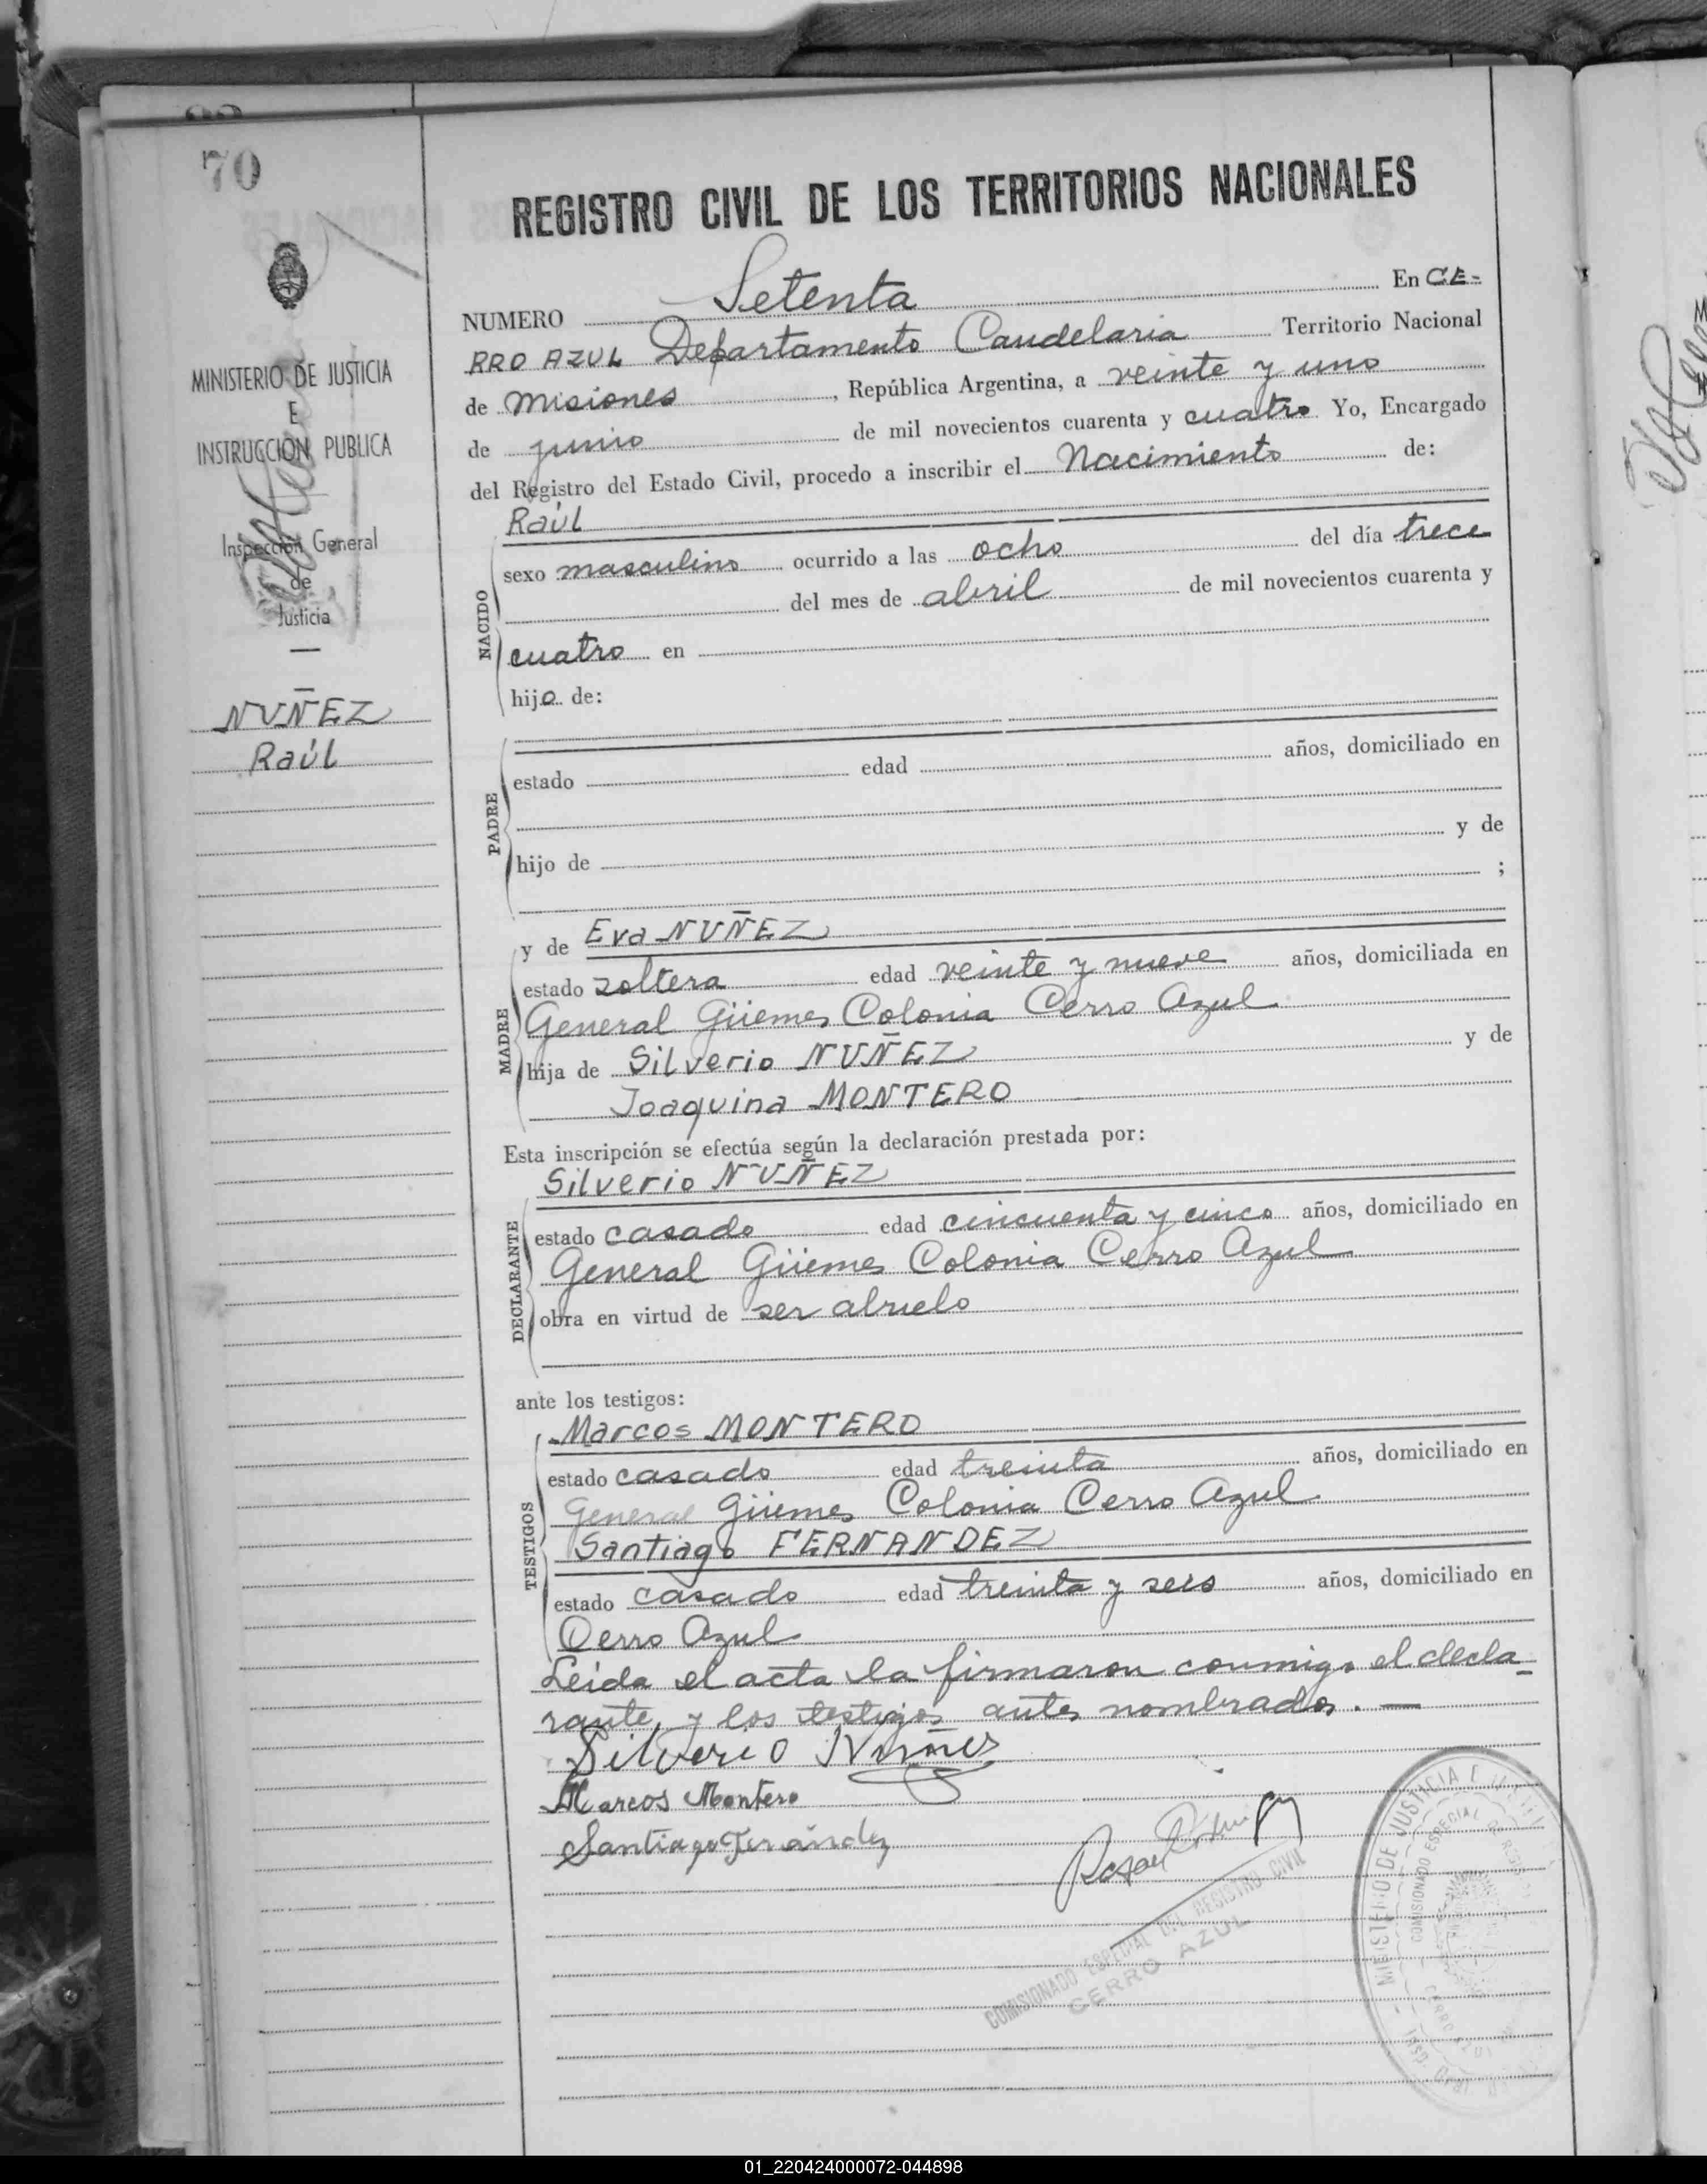 70
REGISTRO CIVIL DE LOS TERRITORIOS NACIONALES
MINISTERIO DE JUSTICIA
E
INSTRUCCION PUBLICA
Inspección General
de
Justicia
NUÑEZ
Raúl
NUMERO Setenta En CE-
RRO AZUL Departamento Candelaria Territorio Nacional
de Misiones, República Argentina, a veinte y uno
de junio de mil novecientos cuarenta y cuatro Yo, Encargado
del Registro del Estado Civil, procedo a inscribir el Nacimiento de:
NACIDO
Raúl
sexo masculino ocurrido a las ocho del día trece
del mes de abril de mil novecientos cuarenta y
cuatro en
hijo de:
PADRE
estado edad años, domiciliado en
hijo de y de
;
MADRE
y de Eva NUÑEZ
estado zoltera edad veinte y nueve años, domiciliada en
General Güemes Colonia Cerro Azul
hija de Silverio NUÑEZ y de
Joaquina MONTERO
Esta inscripción se efectúa según la declaración prestada por:
DECLARANTE
Silverio NUÑEZ
estado casado edad cincuenta y cinco años, domiciliado en
General Güemes Colonia Cerro Azul
obra en virtud de ser abuelo
ante los testigos:
TESTIGOS
Marcos MONTERO
estado casado edad treinta años, domiciliado en
General Güemes Colonia Cerro Azul
Santiago FERNANDEZ
estado casado edad treinta y seis años, domiciliado en
Cerro Azul
Leida el acta la firmaron conmigo el decla-
rante y los testigos antes nombrados. —
Silverio Nuñes
Marcos Montero
Santiago Fernández
COMISIONADO ESPECIAL DEL REGISTRO CIVIL
CERRO AZUL
MINISTERIO DE JUSTICIA E
COMISIONADO ESPECIAL
CERRO AZUL
01_220424000072-044898